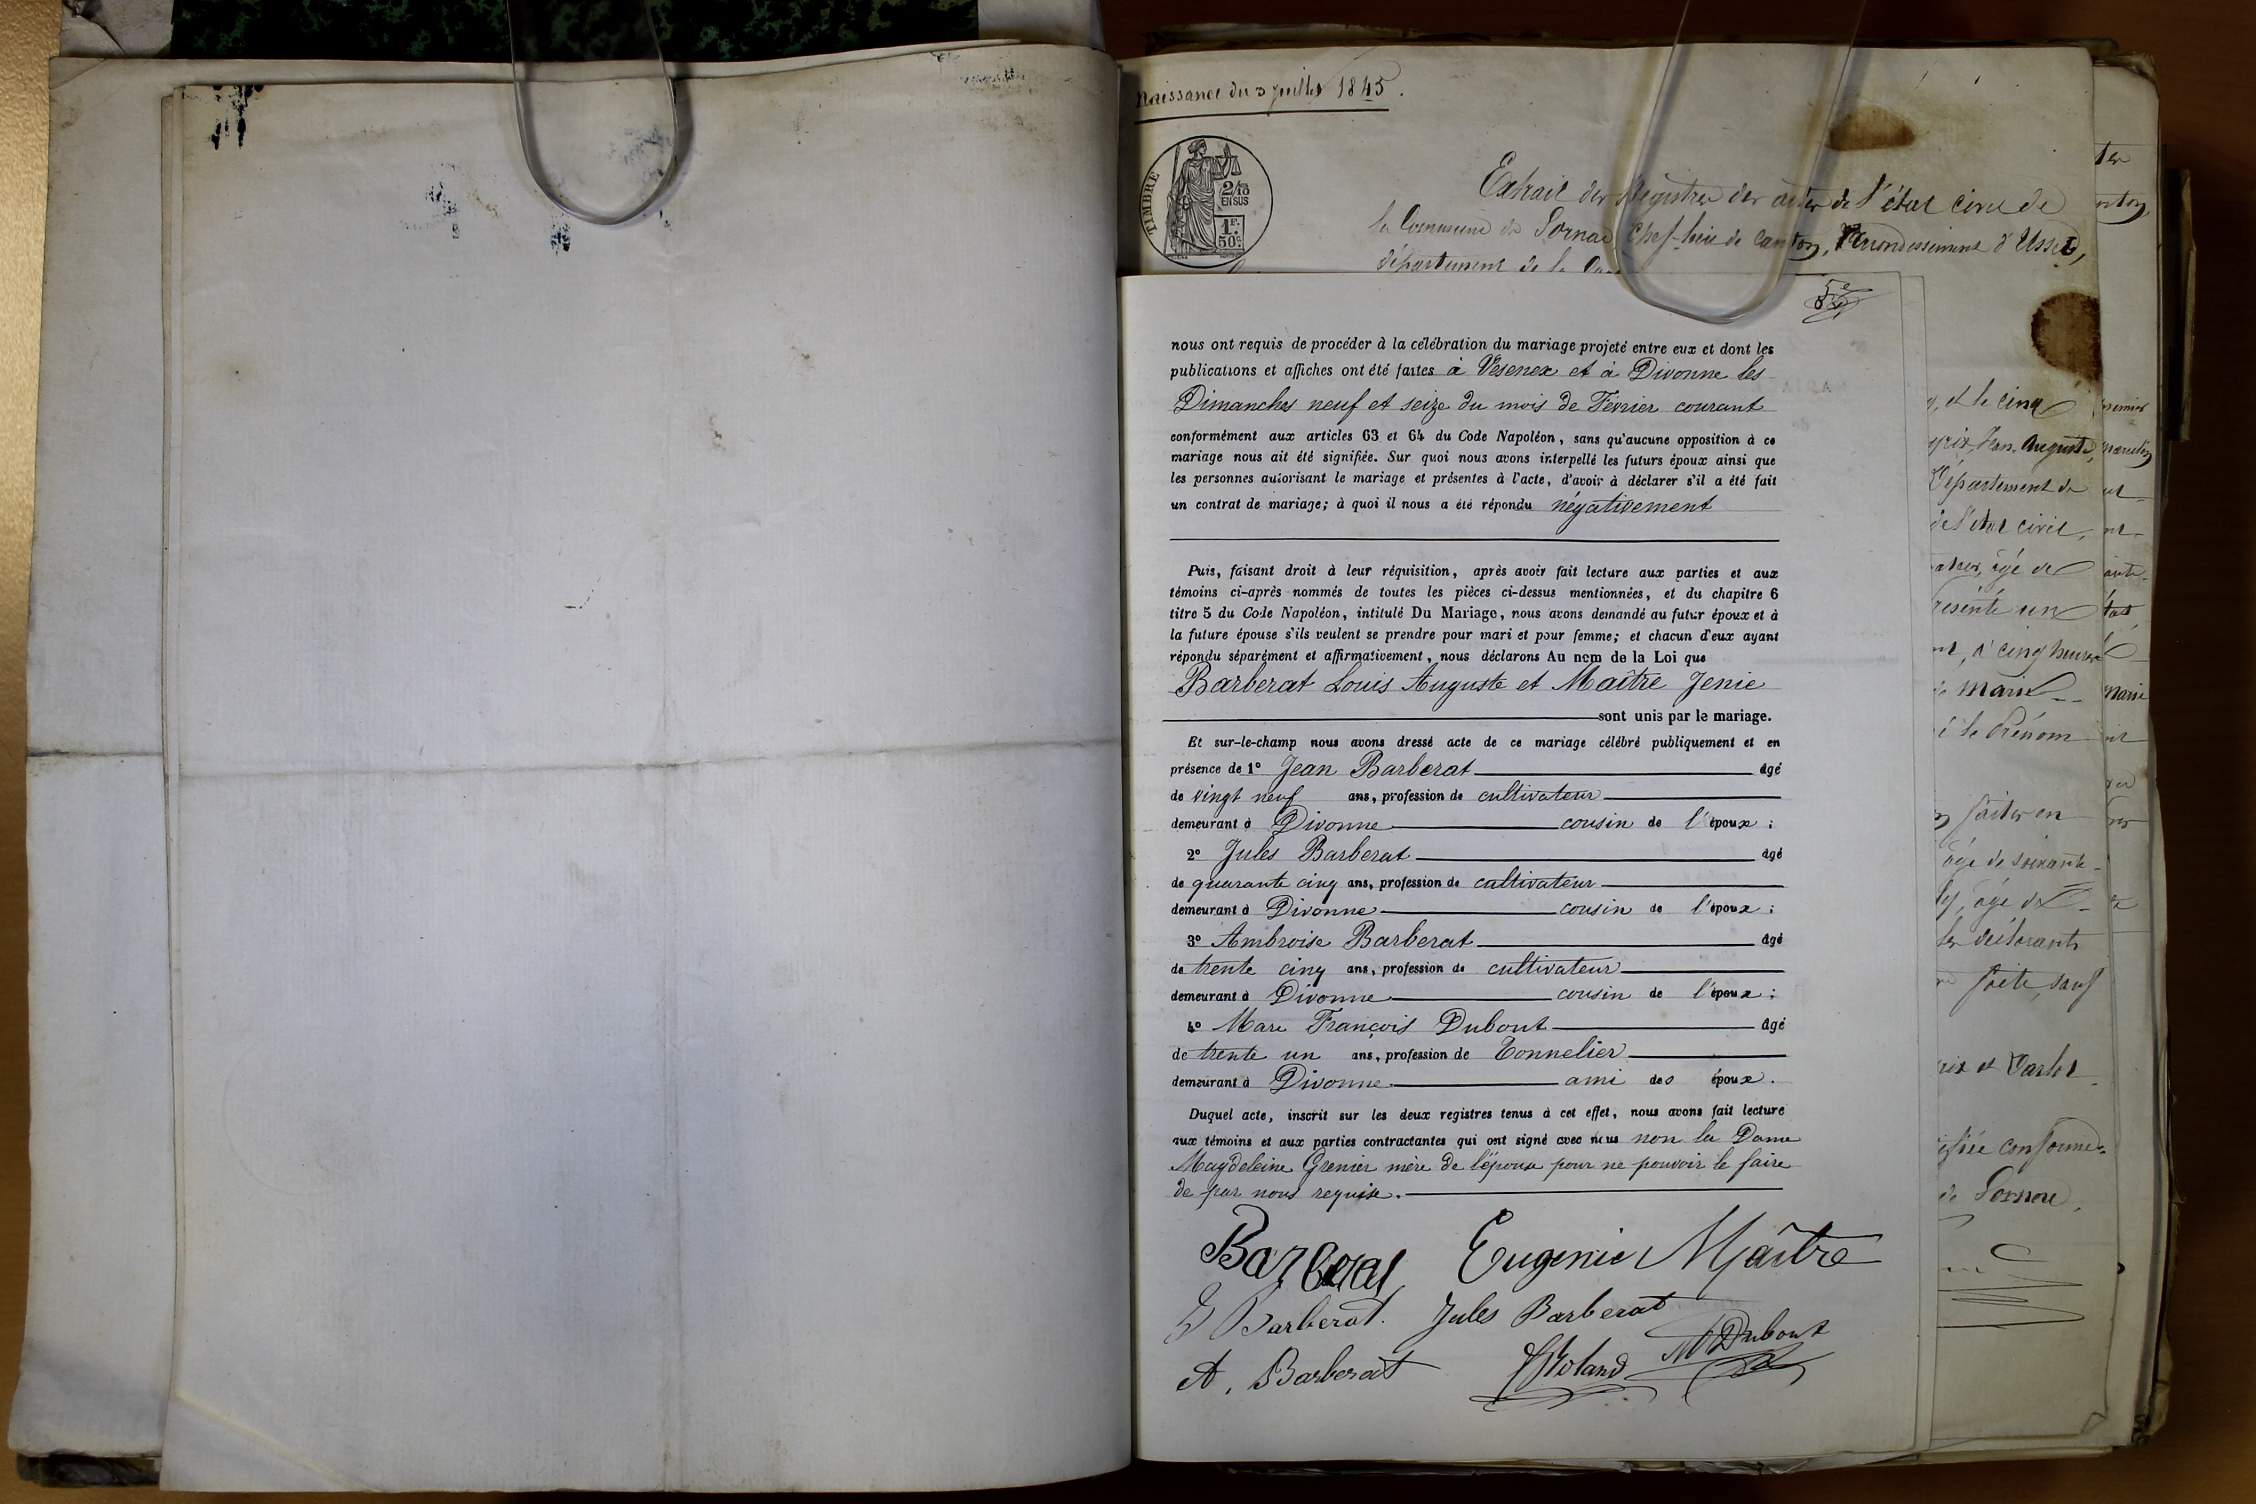 Naissance du 3 juillet 1845.
TIMBRE
2/10
EN SUS
1F.
50c.
Extrait des Registres des actes de l'état civil de
la Commune de Sornac, Chef-lieu de canton, Arrondissement d'Ussel,
département de la
nous ont requis de procéder à la célébration du mariage projeté entre eux et dont les
publications et affiches ont été faites à Vesenex et à Divonne les
Dimanches neuf et seize du mois de Février courant
conformément aux articles 63 et 64 du Code Napoléon, sans qu'aucune opposition à ce
mariage nous ait été signifiée. Sur quoi nous avons interpellé les futurs époux ainsi que
les personnes autorisant le mariage et présentes à l'acte, d'avoir à déclarer s'il a été fait
un contrat de mariage; à quoi il nous a été répondu négativement
Puis, faisant droit à leur réquisition, après avoir fait lecture aux parties et aux
témoins ci-après nommés de toutes les pièces ci-dessus mentionnées, et du chapitre 6
titre 5 du Code Napoléon, intitulé Du Mariage, nous avons demandé au futur époux et à
la future épouse s'ils veulent se prendre pour mari et pour femme; et chacun d'eux ayant
répondu séparément et affirmativement, nous déclarons Au nom de la Loi que
Barberat Louis Auguste et Maître Jenie
sont unis par le mariage.
Et sur-le-champ nous avons dressé acte de ce mariage célébré publiquement et en
présence de 1° Jean Barberat âgé
de vingt neuf ans, profession de cultivateur
demeurant à Divonne cousin de l'époux;
2° Jules Barberat âgé
de quarante cinq ans, profession de cultivateur
demeurant à Divonne cousin de l'époux;
3° Ambroise Barberat âgé
de trente cinq ans, profession de cultivateur
demeurant à Divonne cousin de l'époux;
4° Marc François Dubout âgé
de trente un ans, profession de Tonnelier
demeurant à Divonne ami des époux.
Duquel acte, inscrit sur les deux registres tenus à cet effet, nous avons fait lecture
aux témoins et aux parties contractantes qui ont signé avec nous non la Dame
Magdeleine Grenier mère de l'époux pour ne pouvoir le faire
de par nous requise.
Barberat Eugenie Maître
Barberat. Jules Barberat
A. Barberat Roland M Dubout
et le cinq
Jean Auguste,
Département de
de l'état civil,
âgé de
présenté un
à cinq heures
Marie
le Prénom
faites en
âgé de soixante-
âgé de
les déclarants
faite, sauf
conforme
de Sornac,
premier
Marie